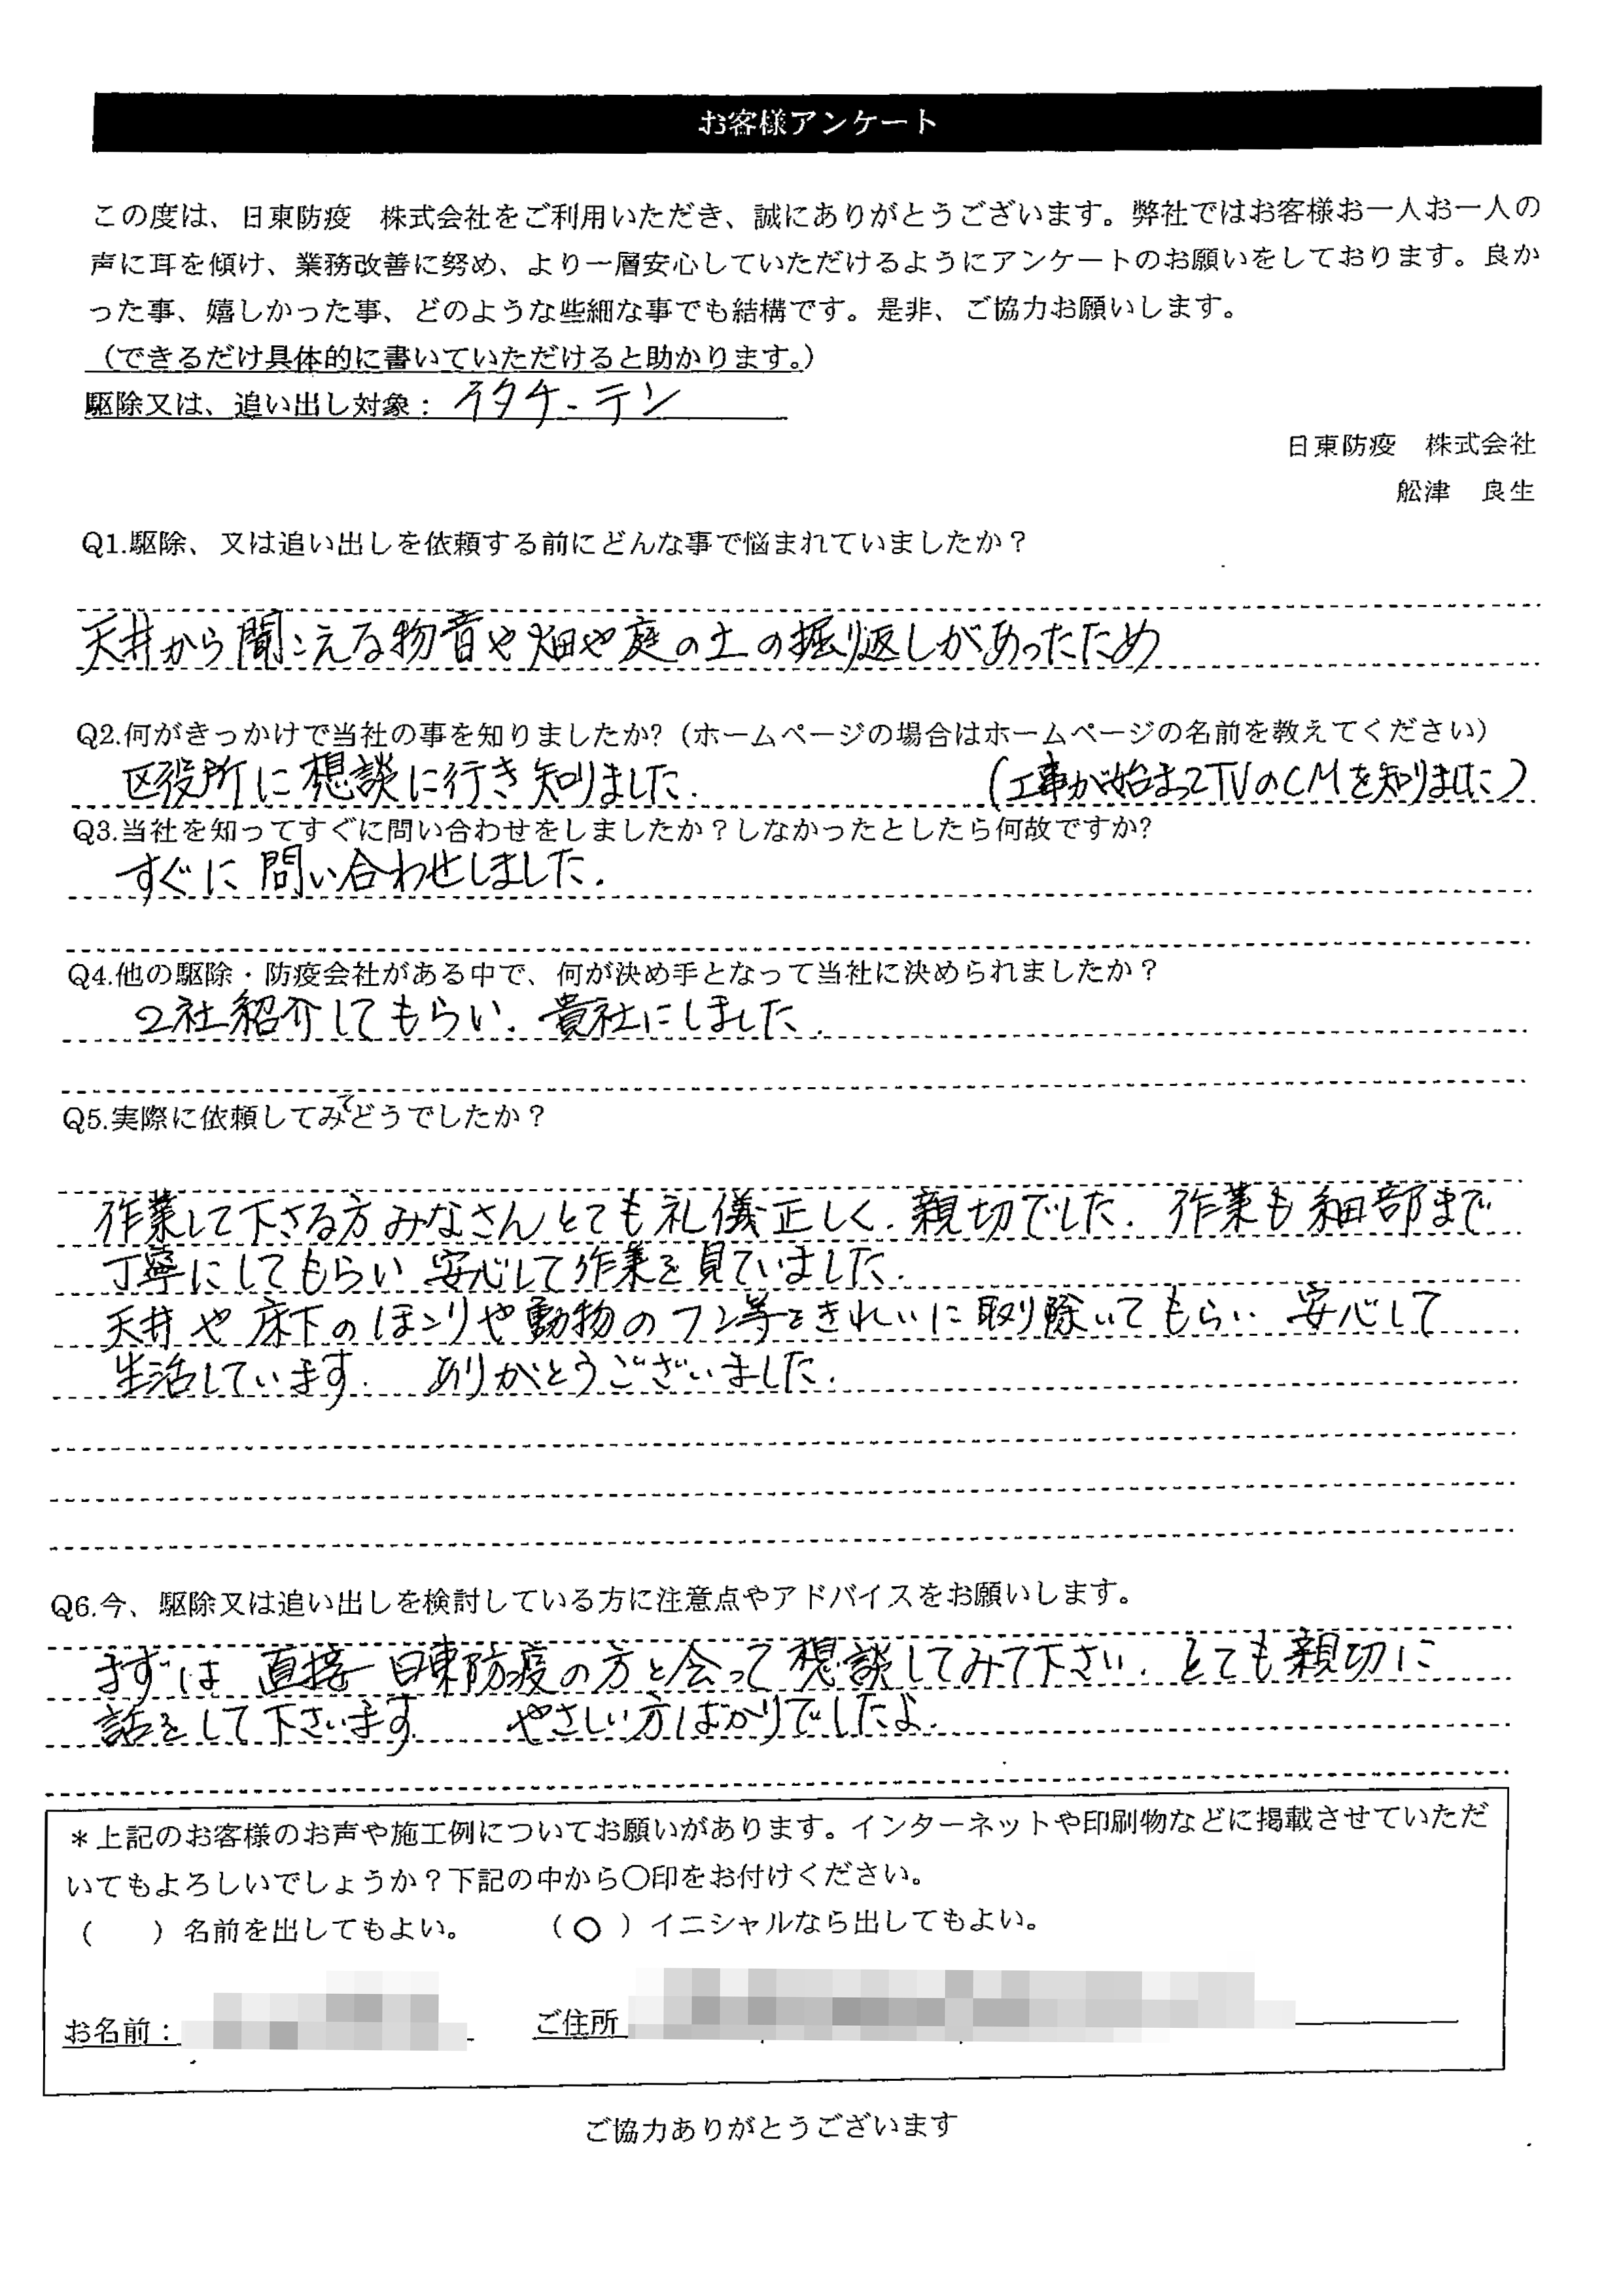 お客様アンケート
この度は、日東防疫　株式会社をご利用いただき、誠にありがとうございます。弊社ではお客様お一人お一人の
声に耳を傾け、業務改善に努め、より一層安心していただけるようにアンケートのお願いをしております。良か
った事、嬉しかった事、どのような些細な事でも結構です。是非、ご協力お願いします。
（できるだけ具体的に書いていただけると助かります。）
駆除又は、追い出し対象：イタチ・テン
日東防疫　株式会社
舩津　良生
Q1.駆除、又は追い出しを依頼する前にどんな事で悩まれていましたか？
天井から聞こえる物音や畑や庭の土の掘り返しがあったため
Q2.何がきっかけで当社の事を知りましたか?（ホームページの場合はホームページの名前を教えてください）
区役所に想談に行き知りました. （工事が始まってTVのCMを知りました）
Q3.当社を知ってすぐに問い合わせをしましたか？しなかったとしたら何故ですか?
すぐに問い合わせしました.
Q4.他の駆除・防疫会社がある中で、何が決め手となって当社に決められましたか？
2社紹介してもらい. 貴社にしました.
Q5.実際に依頼してみてどうでしたか？
作業して下さる方みなさんとても礼儀正しく. 親切でした. 作業も細部まで
丁寧にしてもらい 安心して作業を見ていました.
天井や床下のほこりや動物のフン等をきれいに取り除いてもらい 安心して
生活しています. ありがとうございました.
Q6.今、駆除又は追い出しを検討している方に注意点やアドバイスをお願いします。
まずは 直接日東防疫の方と会って想談してみて下さい. とても親切に
話をして下さいます. やさしい方ばかりでしたよ.
＊上記のお客様のお声や施工例についてお願いがあります。インターネットや印刷物などに掲載させていただ
いてもよろしいでしょうか？下記の中から〇印をお付けください。
（　　）名前を出してもよい。　（〇）イニシャルなら出してもよい。
お名前：　ご住所
ご協力ありがとうございます